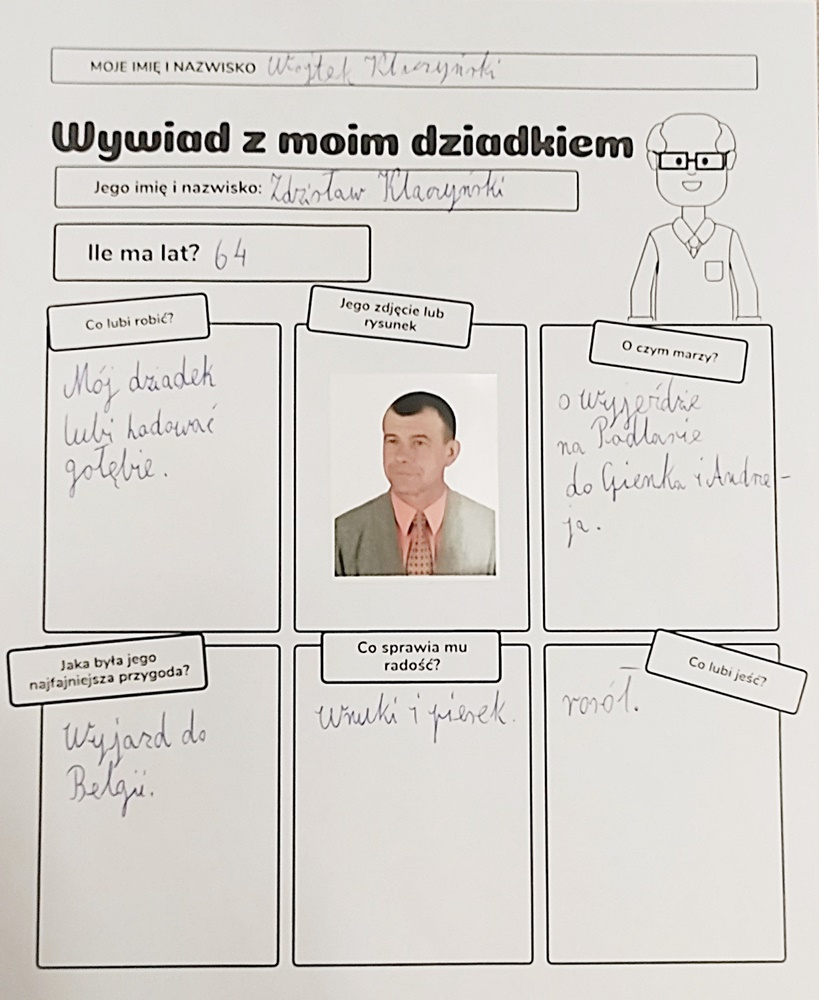 MOJE IMIĘ I NAZWISKO Wojtek Klaczyński
Wywiad z moim dziadkiem
Jego imię i nazwisko: Zdzisław Klaczyński
Ile ma lat? 64
Co lubi robić?
Mój dziadek
lubi hodować
gołębie.
Jego zdjęcie lub
rysunek
O czym marzy?
o wyjeździe
na Podlasie
do Gienka i Andrze-
ja.
Jaka była jego
najfajniejsza przygoda?
Wyjazd do
Belgii.
Co sprawia mu
radość?
Wnuki i piesek.
Co lubi jeść?
rosół.